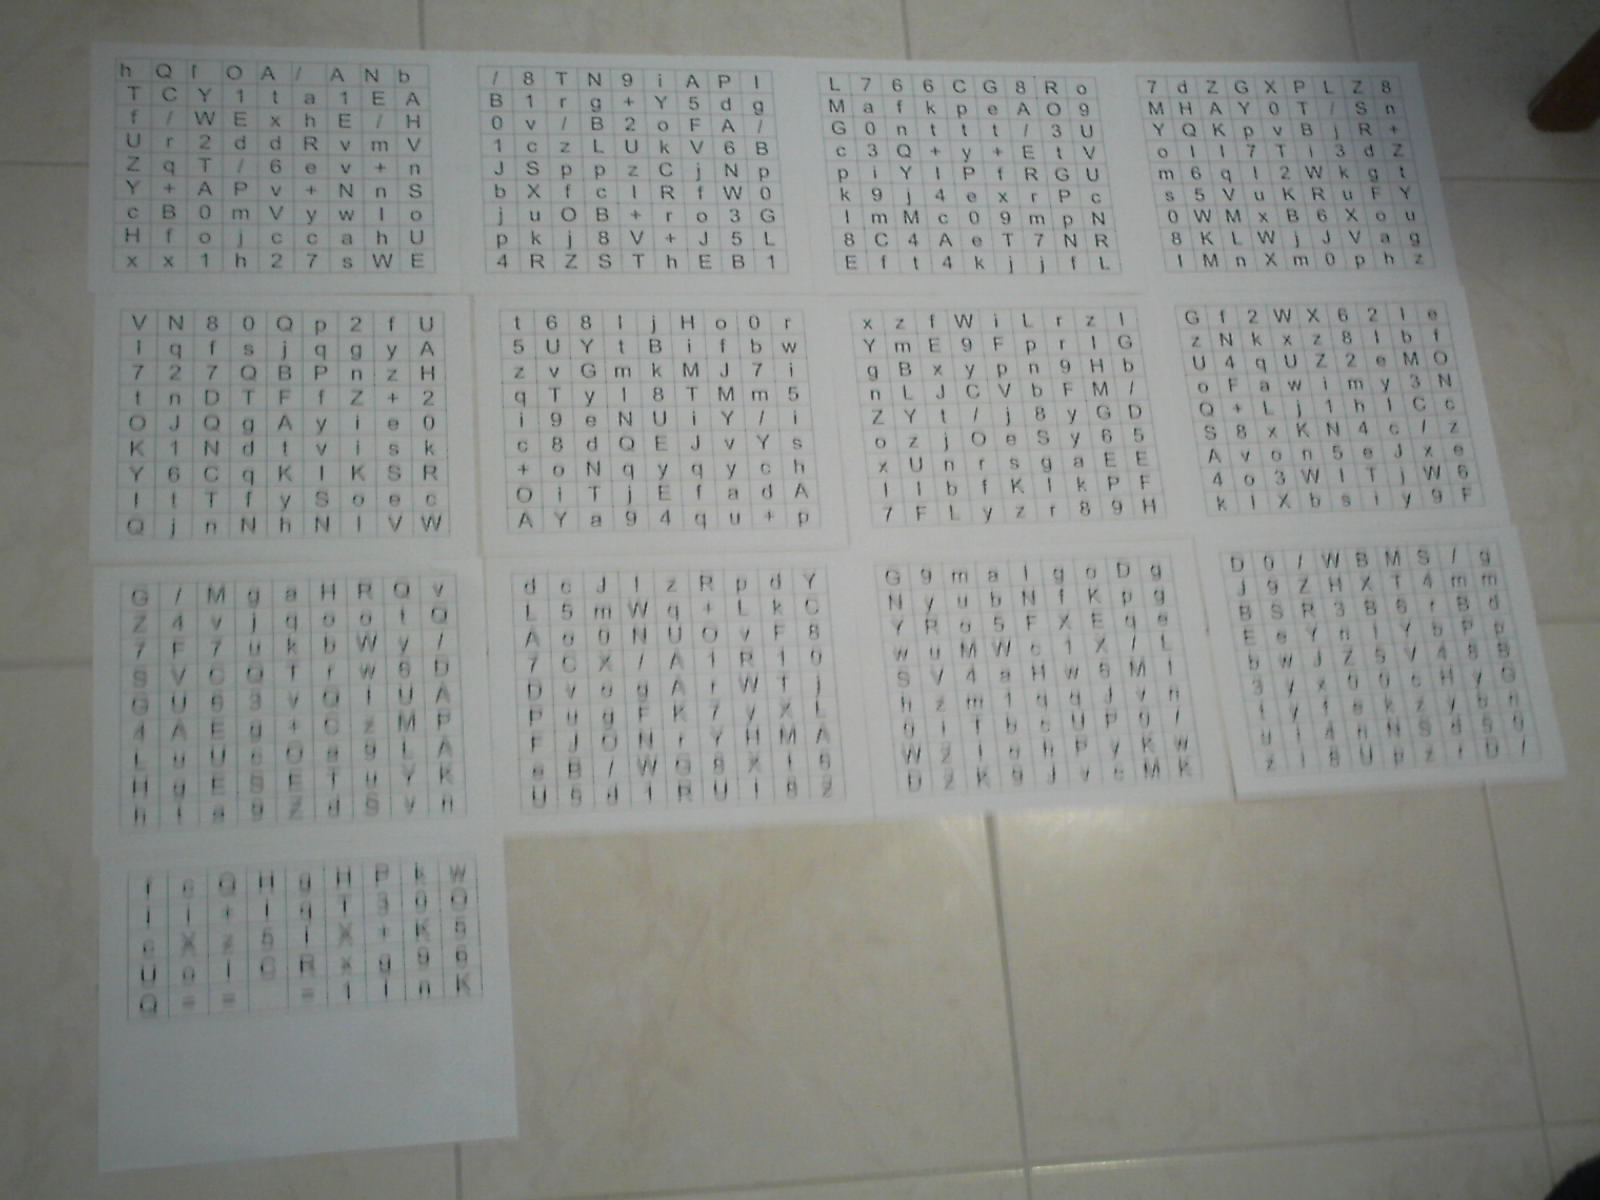 h Q f O A / A N b
T C Y 1 t a 1 E A
f / W E x h E / H
U r 2 d d R v m V
Z q T / 6 e v + n
Y + A P v + N n S
c B 0 m V y w I o
H f o j c c a h U
x x 1 h 2 7 s W E
/ 8 T N 9 i A P I
B 1 r g + Y 5 d g
0 v / B 2 o F A /
1 c z L U k V 6 B
J S p p z C j N p
b X f c I R f W 0
j u O B + r o 3 G
p k j 8 V + J 5 L
4 R Z S T h E B 1
L 7 6 6 C G 8 R o
M a f k p e A O 9
G 0 n t t t / 3 U
c 3 Q + y + E t V
p i Y I P f R G U
k 9 j 4 e x r P c
I m M c 0 9 m p N
8 C 4 A e T 7 N R
E f t 4 k j j f L
7 d Z G X P L Z 8
M H A Y 0 T / S n
Y Q K p v B j R +
o I I 7 T i 3 d Z
m 6 q I 2 W k g t
s 5 V u K R u F Y
0 W M x B 6 X o u
8 K L W j J V a g
I M n X m 0 p h z
V N 8 0 Q p 2 f U
I q f s j q g y A
7 2 7 Q B P n z H
t n D T F f Z + 2
O J Q g A y i e 0
K 1 N d t v i s k
Y 6 C q K I K S R
I t T f y S o e c
Q j n N h N I V W
t 6 8 I j H o 0 r
5 U Y t B i f b w
z v G m k M J 7 i
q T y I 8 T M m 5
i 9 e N U i Y / i
c 8 d Q E J v Y s
+ o N q y q y c h
O i T j E f a d A
A Y a 9 4 q u + p
x z f W i L r z I
Y m E 9 F p r I G
g B x y p n 9 H b
n L J C V b F M /
Z Y t / j 8 y G D
o z j O e S y 6 5
x U n r s g a E E
I I b f K I k P F
7 F L y z r 8 9 H
G f 2 W X 6 2 I e
z N k x z 8 I b f
U 4 q U Z 2 e M O
o F a w i m y 3 N
Q + L j 1 h I C c
S 8 x K N 4 c / z
A v o n 5 e J x e
4 o 3 W I T j W 6
k I X b s i y 9 F
G / M g a H R Q v
Z 4 v j q o o t Q
7 F 7 u k b W y /
V C Q f r w 6 D
G U 6 3 v Q I U A
4 A E g + C z M P
L u U c O a g L A
H g E S E T u Y K
h a 9 Z d S v n
d c J I z R p d Y
L 5 m W q + L k C
A o 0 N U O v F 8
7 C X / A 1 R 1 0
D v g A r W T j
P u g F K 7 y X L
F J O N r Y H M A
B / W G 8 X
U 5 d 1 R U I 8 2
G 9 m a I g o D g
N y u b N f K p g
Y R o 5 F X E q e
w u M W c 1 X / L
S V 4 a H w 6 M I
h z m 1 q q J v n
T b c U P 0 /
W h P y K w
D K 9 J v c M K
D 0 / W B M S / g
J 9 Z H X T 4 m m
B S R 3 B 6 r B d
E e Y n I Y b P p
b w J Z 5 V 4 8 B
3 y x 0 0 c H y G
y f k z y b n
u 4 h N S d
z 8 U p z r D /
f c Q H g H P k W
j I + I q T 3 0 O
X z 5 X + K 5
U o I C R x g 9 6
Q = = = 1 n K